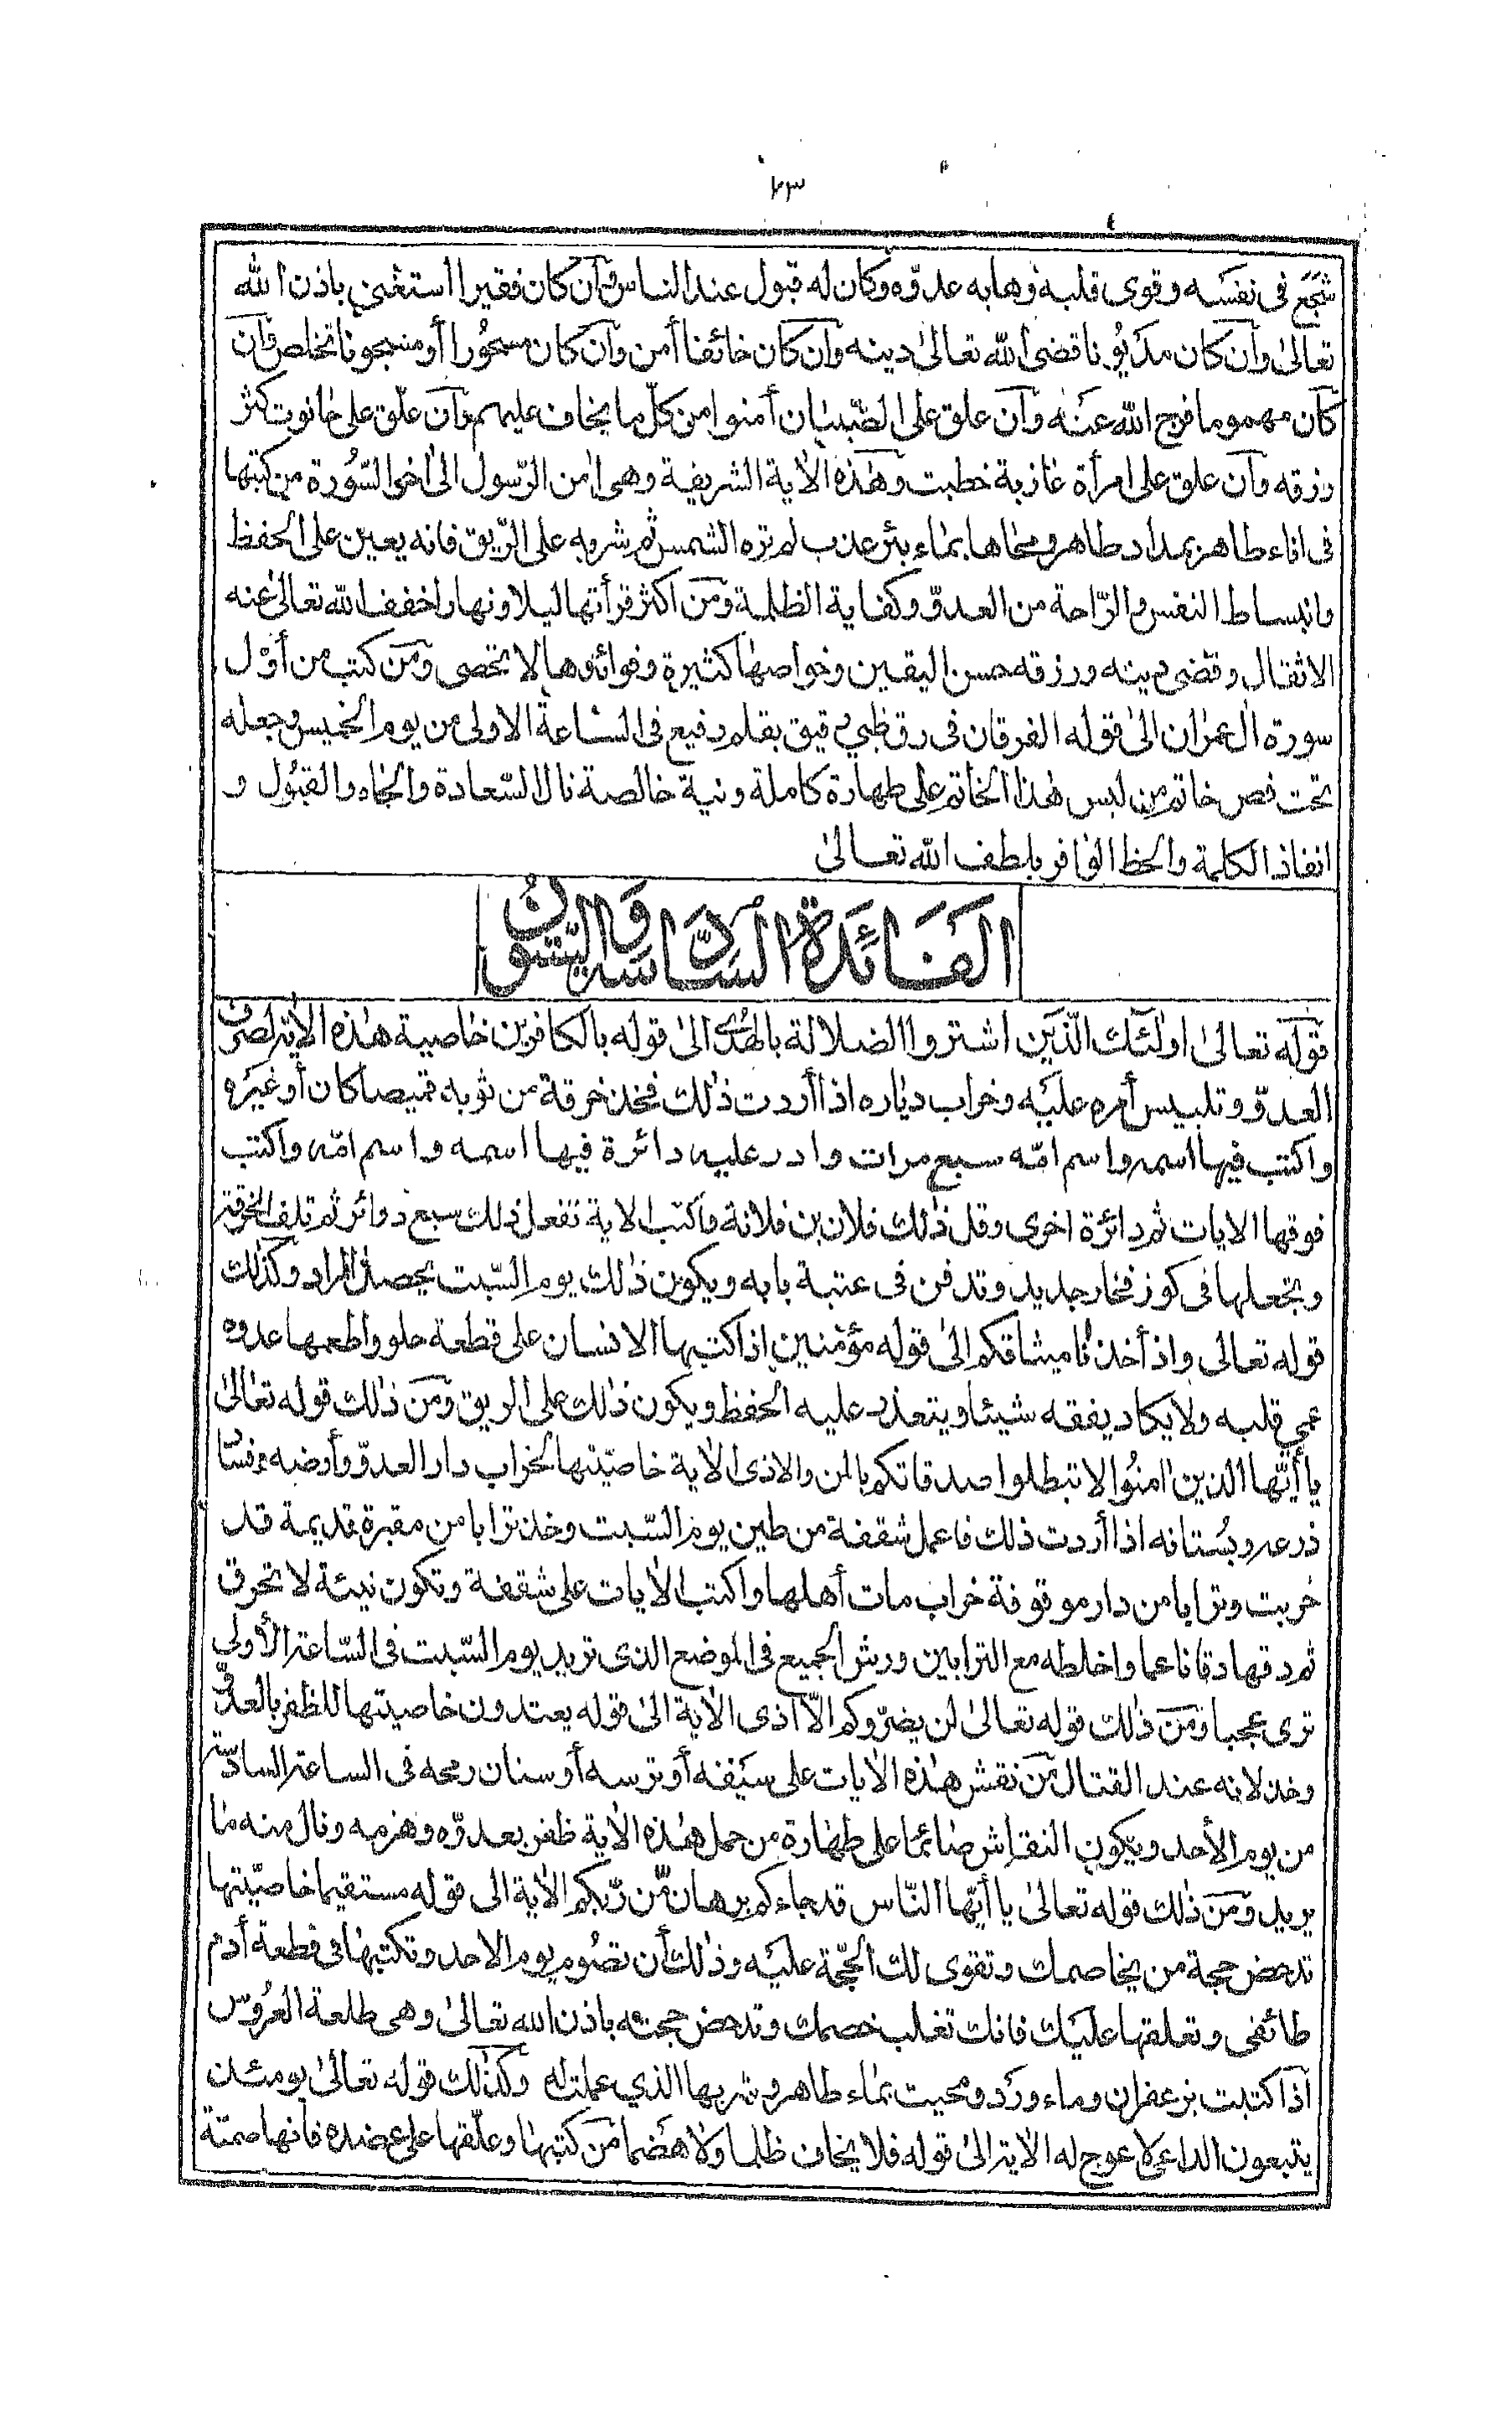 ٤٣
شجع فى نفسه وقوى قلبه وهابه عدوّه وكان له قبول عند الناس وان كان فقيرا استغنى باذن الله
تعالىٰ وان كان مديُونا قضى الله تعالىٰ دينه وان كان خائفا أمن وان كان مسحُورا أو مسجونا تخلص وان
كان مهموما فرج الله عنه وان علق على الصّبيان أمنوا من كلّ ما يخاف عليهم وان علّق على حانوت كثر
رزقه وان علق على امرأة عازبة خطبت وهٰذه الاٰية الشريفة وهى اٰمن الرّسول الىٰ اٰخر السُّورة من كتبها
فى اناء طاهر بمداد طاهر ومحاها بماء بئر عذب لم تره الشمس ثم شربه على الرّيق فانه يعين على الحفظ
وانبساط النفس والرّاحة من العدوّ وكفاية الظلمة ومن اكثر قرأتها ليلا ونهارا خفف الله تعالىٰ عنه
الاثقال وقضى دينه ورزقه حسن اليقين وخواصها كثيرة وفوائدها لا تحصى ومن كتب من أوّل
سورة اٰل عمرٰان الىٰ قوله الفرقان فى رق ظبي دقيق بقلم رفيع فى السّاعة الاولى من يوم الخميس وجعله
تحت فص خاتم من لبس هٰذا الخاتم على طهارة كاملة ونية خالصة نال السّعادة والجاه والقبُول و
انفاذ الكلمة والحظ الوافر بلطف الله تعالىٰ
الفائدة السّادسة والستّون
قوله تعالىٰ اولٰئك الّذين اشتروا الضلالة بالهُدىٰ الىٰ قوله بالكافرين خاصية هٰذه الاٰية لصرف
العدوّ وتلبيس أمره عليه وخراب دياره اذا أردت ذٰلك فخذ خرقة من ثوبه قميصا كان أو غيره
واكتب فيها اسمه واسم امّه سبع مرات وادر عليه دائرة فيها اسمه واسم امّه واكتب
فوقها الايات ثم دائرة اخرى وقل ذٰلك فلان بن فلانة واكتب الاية تفعل ذلك سبع دوائر ثم تلف الخرقة
وتجعلها فى كوز فخار جديد وتدفن فى عتبة بابه ويكون ذٰلك يوم السّبت يحصل المراد وكذٰلك
قوله تعالى واذ أخذنا ميثاقكم الىٰ قوله مؤمنين اذا كتبها الانسان على قطعة حلو واطعمها عدوه
عمي قلبه ولا يكاد يفقه شيئا ويتعذر عليه الحفظ ويكون ذٰلك على الريق ومن ذٰلك قوله تعالىٰ
يا أيّها الذين اٰمنُوا لا تبطلوا صدقاتكم بالمن والاذى الاٰية خاصيّتها لخراب دار العدوّ وأرضه وفساد
زرعه وبُستانه اذا أردت ذلك فاعمل شقفة من طين يوم السّبت وخذ ترابا من مقبرة قديمة قد
خربت وترابا من دار موقوفة خراب مات أهلها واكتب الاٰيات على شقفة وتكون نيئة لا تحرق
ثم دقها دقا ناعما واخلطه مع الترابين ورش الجميع فى الموضع الذى تريد يوم السّبت فى السّاعة الأولى
ترى عجبا ومن ذٰلك قوله تعالىٰ لن يضرّوكم الاّ اذى الاٰية الىٰ قوله يعتدون خاصيتها للظفر بالعدوّ
وخذلانه عند القتال من نقش هٰذه الاٰيات على سيفه أو ترسه أو سنان رمحه فى الساعة السادسة
من يوم الأحد ويكون النقاش صائما على طهارة من حمل هٰذه الاٰية ظفر بعدوّه وهزمه ونال منه ما
يريد ومن ذٰلك قوله تعالىٰ يا أيّها النّاس قد جاءكم برهان مّن رّبّكم الاٰية الى قوله مستقيما خاصيّتها
تدحض حجة من يخاصمك وتقوى لك الحجّة عليه وذٰلك أن تصُوم يوم الاحد وتكتبها فى قطعة أدم
طائفى وتعلقها عليك فانك تغلب خصمك وتدحض حجته باذن الله تعالىٰ وهى طلعة العرُوس
اذا كتبت بزعفران وماء ورد ومحيت بماء طاهر وشربها الذي عملت له وكذٰلك قوله تعالىٰ يومئذ
يتبعون الداعى لا عوج له الاٰية الىٰ قوله فلا يخاف ظلما ولا هضما من كتبها وعلّقها على عضده فانها صمتة